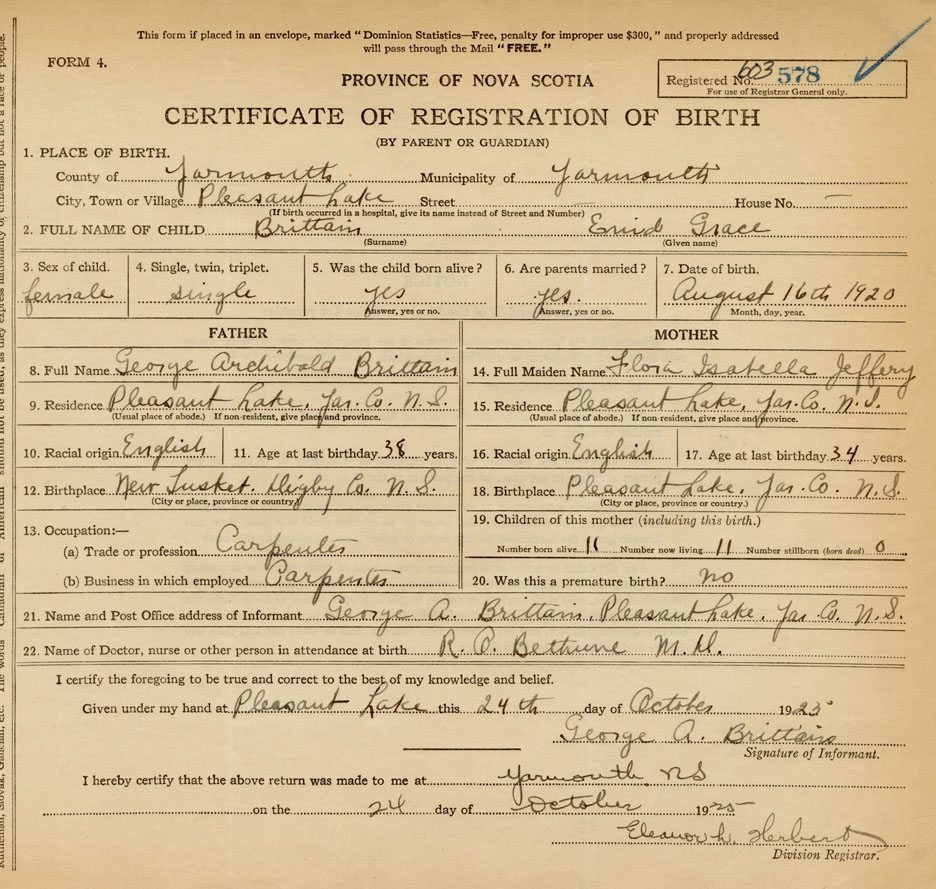 This form if placed in an envelope, marked "Dominion Statistics—Free, penalty for improper use $300," and properly addressed
will pass through the Mail "FREE."
FORM 4.
PROVINCE OF NOVA SCOTIA
Registered No. 603 578
For use of Registrar General only.
CERTIFICATE OF REGISTRATION OF BIRTH
(BY PARENT OR GUARDIAN)
1. PLACE OF BIRTH.
County of Yarmouth Municipality of Yarmouth
City, Town or Village Pleasant Lake Street House No. —
(If birth occurred in a hospital, give its name instead of Street and Number)
2. FULL NAME OF CHILD Brittain Enid Grace
(Surname) (Given name)
3. Sex of child. 4. Single, twin, triplet. 5. Was the child born alive? 6. Are parents married? 7. Date of birth.
female single yes yes. August 16th 1920
Answer, yes or no. Answer, yes or no. Month, day, year.
FATHER MOTHER
8. Full Name George Archibald Brittain 14. Full Maiden Name Flora Isabella Jeffery
9. Residence Pleasant Lake, Yar. Co. N.S. 15. Residence Pleasant Lake, Yar. Co. N.S.
(Usual place of abode.) If non-resident, give place and province. (Usual place of abode.) If non-resident, give place and province.
10. Racial origin English 11. Age at last birthday 38 years. 16. Racial origin English 17. Age at last birthday 34 years.
12. Birthplace New Tusket. Digby Co. N.S. 18. Birthplace Pleasant Lake, Yar. Co. N.S.
(City or place, province or country) (City or place, province or country.)
13. Occupation:— 19. Children of this mother (including this birth.)
(a) Trade or profession Carpenter Number born alive 11 Number now living 11 Number stillborn (born dead) 0
(b) Business in which employed Carpenter 20. Was this a premature birth? no
21. Name and Post Office address of Informant George A. Brittain, Pleasant Lake, Yar. Co. N.S.
22. Name of Doctor, nurse or other person in attendance at birth R. O. Bethune M.D.
I certify the foregoing to be true and correct to the best of my knowledge and belief.
Given under my hand at Pleasant Lake this 24th day of October 1925
George A. Brittain
Signature of Informant.
I hereby certify that the above return was made to me at Yarmouth NS
on the 24 day of October 1925
Eleanor L. Herbert
Division Registrar.